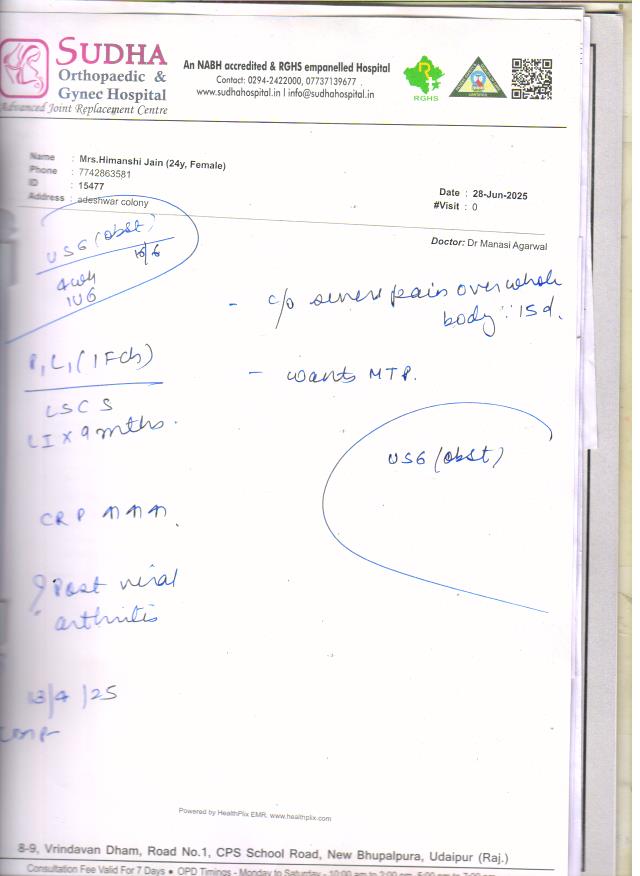 SUDHA
Orthopaedic &
Gynec Hospital
Advanced Joint Replacement Centre
An NABH accredited & RGHS empanelled Hospital
Contact: 0294-2422000, 07737139677
www.sudhahospital.in | info@sudhahospital.in
RGHS
Name : Mrs.Himanshi Jain (24y, Female)
Phone : 7742863581
ID : 15477
Address : adeshwar colony
Date : 28-Jun-2025
#Visit : 0
Doctor: Dr Manasi Agarwal
USG (obst)
16/6
4 wk
IUG
- c/o severe pain over whole
body : 15d.
P1L1 (1 Fch)
- wants MTP.
LSCS
LI x 9 mths.
USG (obst)
CRP ↑↑↑
? Post viral
arthritis
13/4/25
LMP
Powered by HealthPlix EMR. www.healthplix.com
8-9, Vrindavan Dham, Road No.1, CPS School Road, New Bhupalpura, Udaipur (Raj.)
Consultation Fee Valid For 7 Days • OPD Timings - Monday to Saturday - 10:00 am to